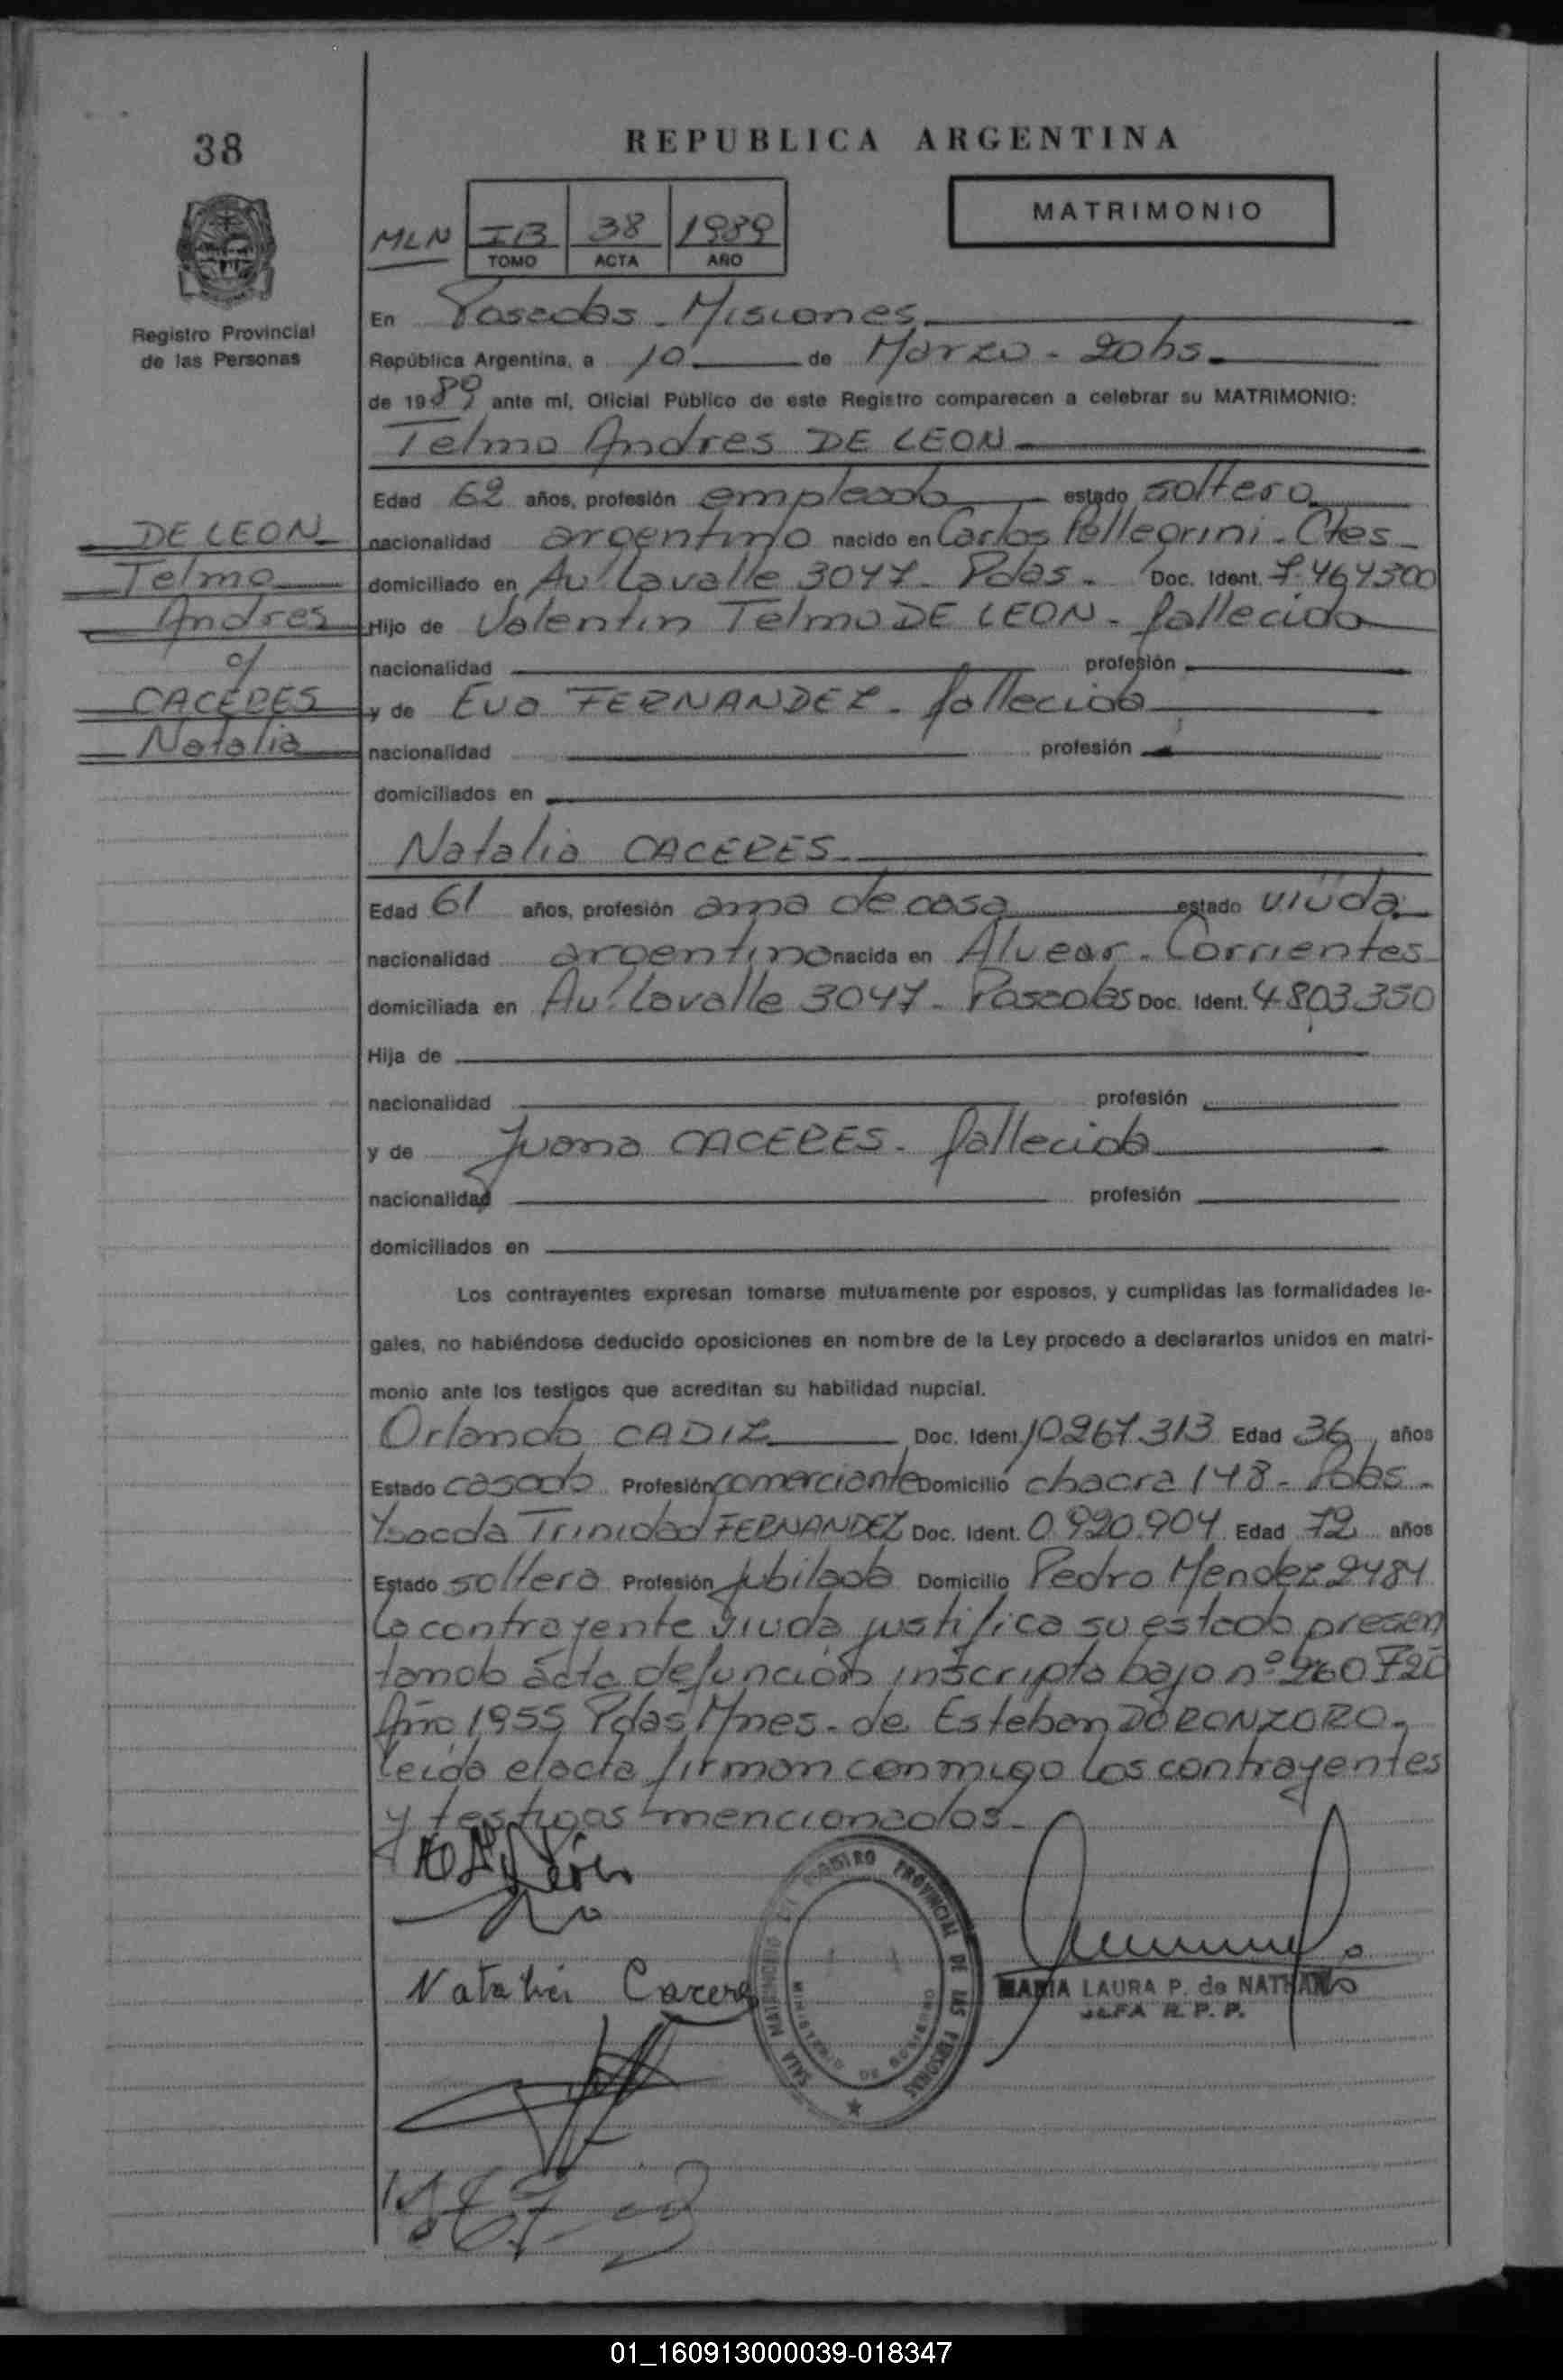 38
REPUBLICA ARGENTINA
MLN
IB 38 1989
TOMO ACTA AÑO
MATRIMONIO
Registro Provincial
de las Personas
En Posadas - Misiones
República Argentina, a 10 de Marzo - 20 hs.
de 1989 ante mí, Oficial Público de este Registro comparecen a celebrar su MATRIMONIO:
Telmo Andres DE LEON
Edad 62 años, profesión empleado estado soltero
DE LEON
Telmo
Andres
c/
CACERES
Natalia
nacionalidad argentino nacido en Carlos Pellegrini - Ctes
domiciliado en Av. Lavalle 3047 - Pdas - Doc. Ident. 7.464300
Hijo de Valentin Telmo DE LEON - fallecido
nacionalidad profesión
y de Eva FERNANDEZ - fallecida
nacionalidad profesión
domiciliados en
Natalia CACERES
Edad 61 años, profesión ama de casa estado viuda
nacionalidad argentina nacida en Alvear - Corrientes
domiciliada en Av. Lavalle 3047 - Posadas Doc. Ident. 4.803.350
Hija de
nacionalidad profesión
y de Juana CACERES - fallecida
nacionalidad profesión
domiciliados en
Los contrayentes expresan tomarse mutuamente por esposos, y cumplidas las formalidades le-
gales, no habiéndose deducido oposiciones en nombre de la Ley procedo a declararlos unidos en matri-
monio ante los testigos que acreditan su habilidad nupcial.
Orlando CADIZ Doc. Ident. 10.267.313 Edad 36 años
Estado casado Profesión comerciante Domicilio chacra 148 - Pdas -
Trinidad FERNANDEZ Doc. Ident. 0.920.904 Edad 72 años
Estado soltera Profesión Jubilada Domicilio Pedro Mendez 2484
La contrayente viuda justifica su estado presen
tando acta defunción inscripta bajo nº
Año 1955 Pdas Mnes - de Esteban DORONZORO -
leida el acta firman conmigo los contrayentes
y testigos mencionados -
Natalia Caceres
REGISTRO PROVINCIAL DE LAS PERSONAS
SALA MATRIMONIOS
MINISTERIO DE GOBIERNO
MARIA LAURA P. de NATHAN
JEFA R. P. P.
01_160913000039-018347